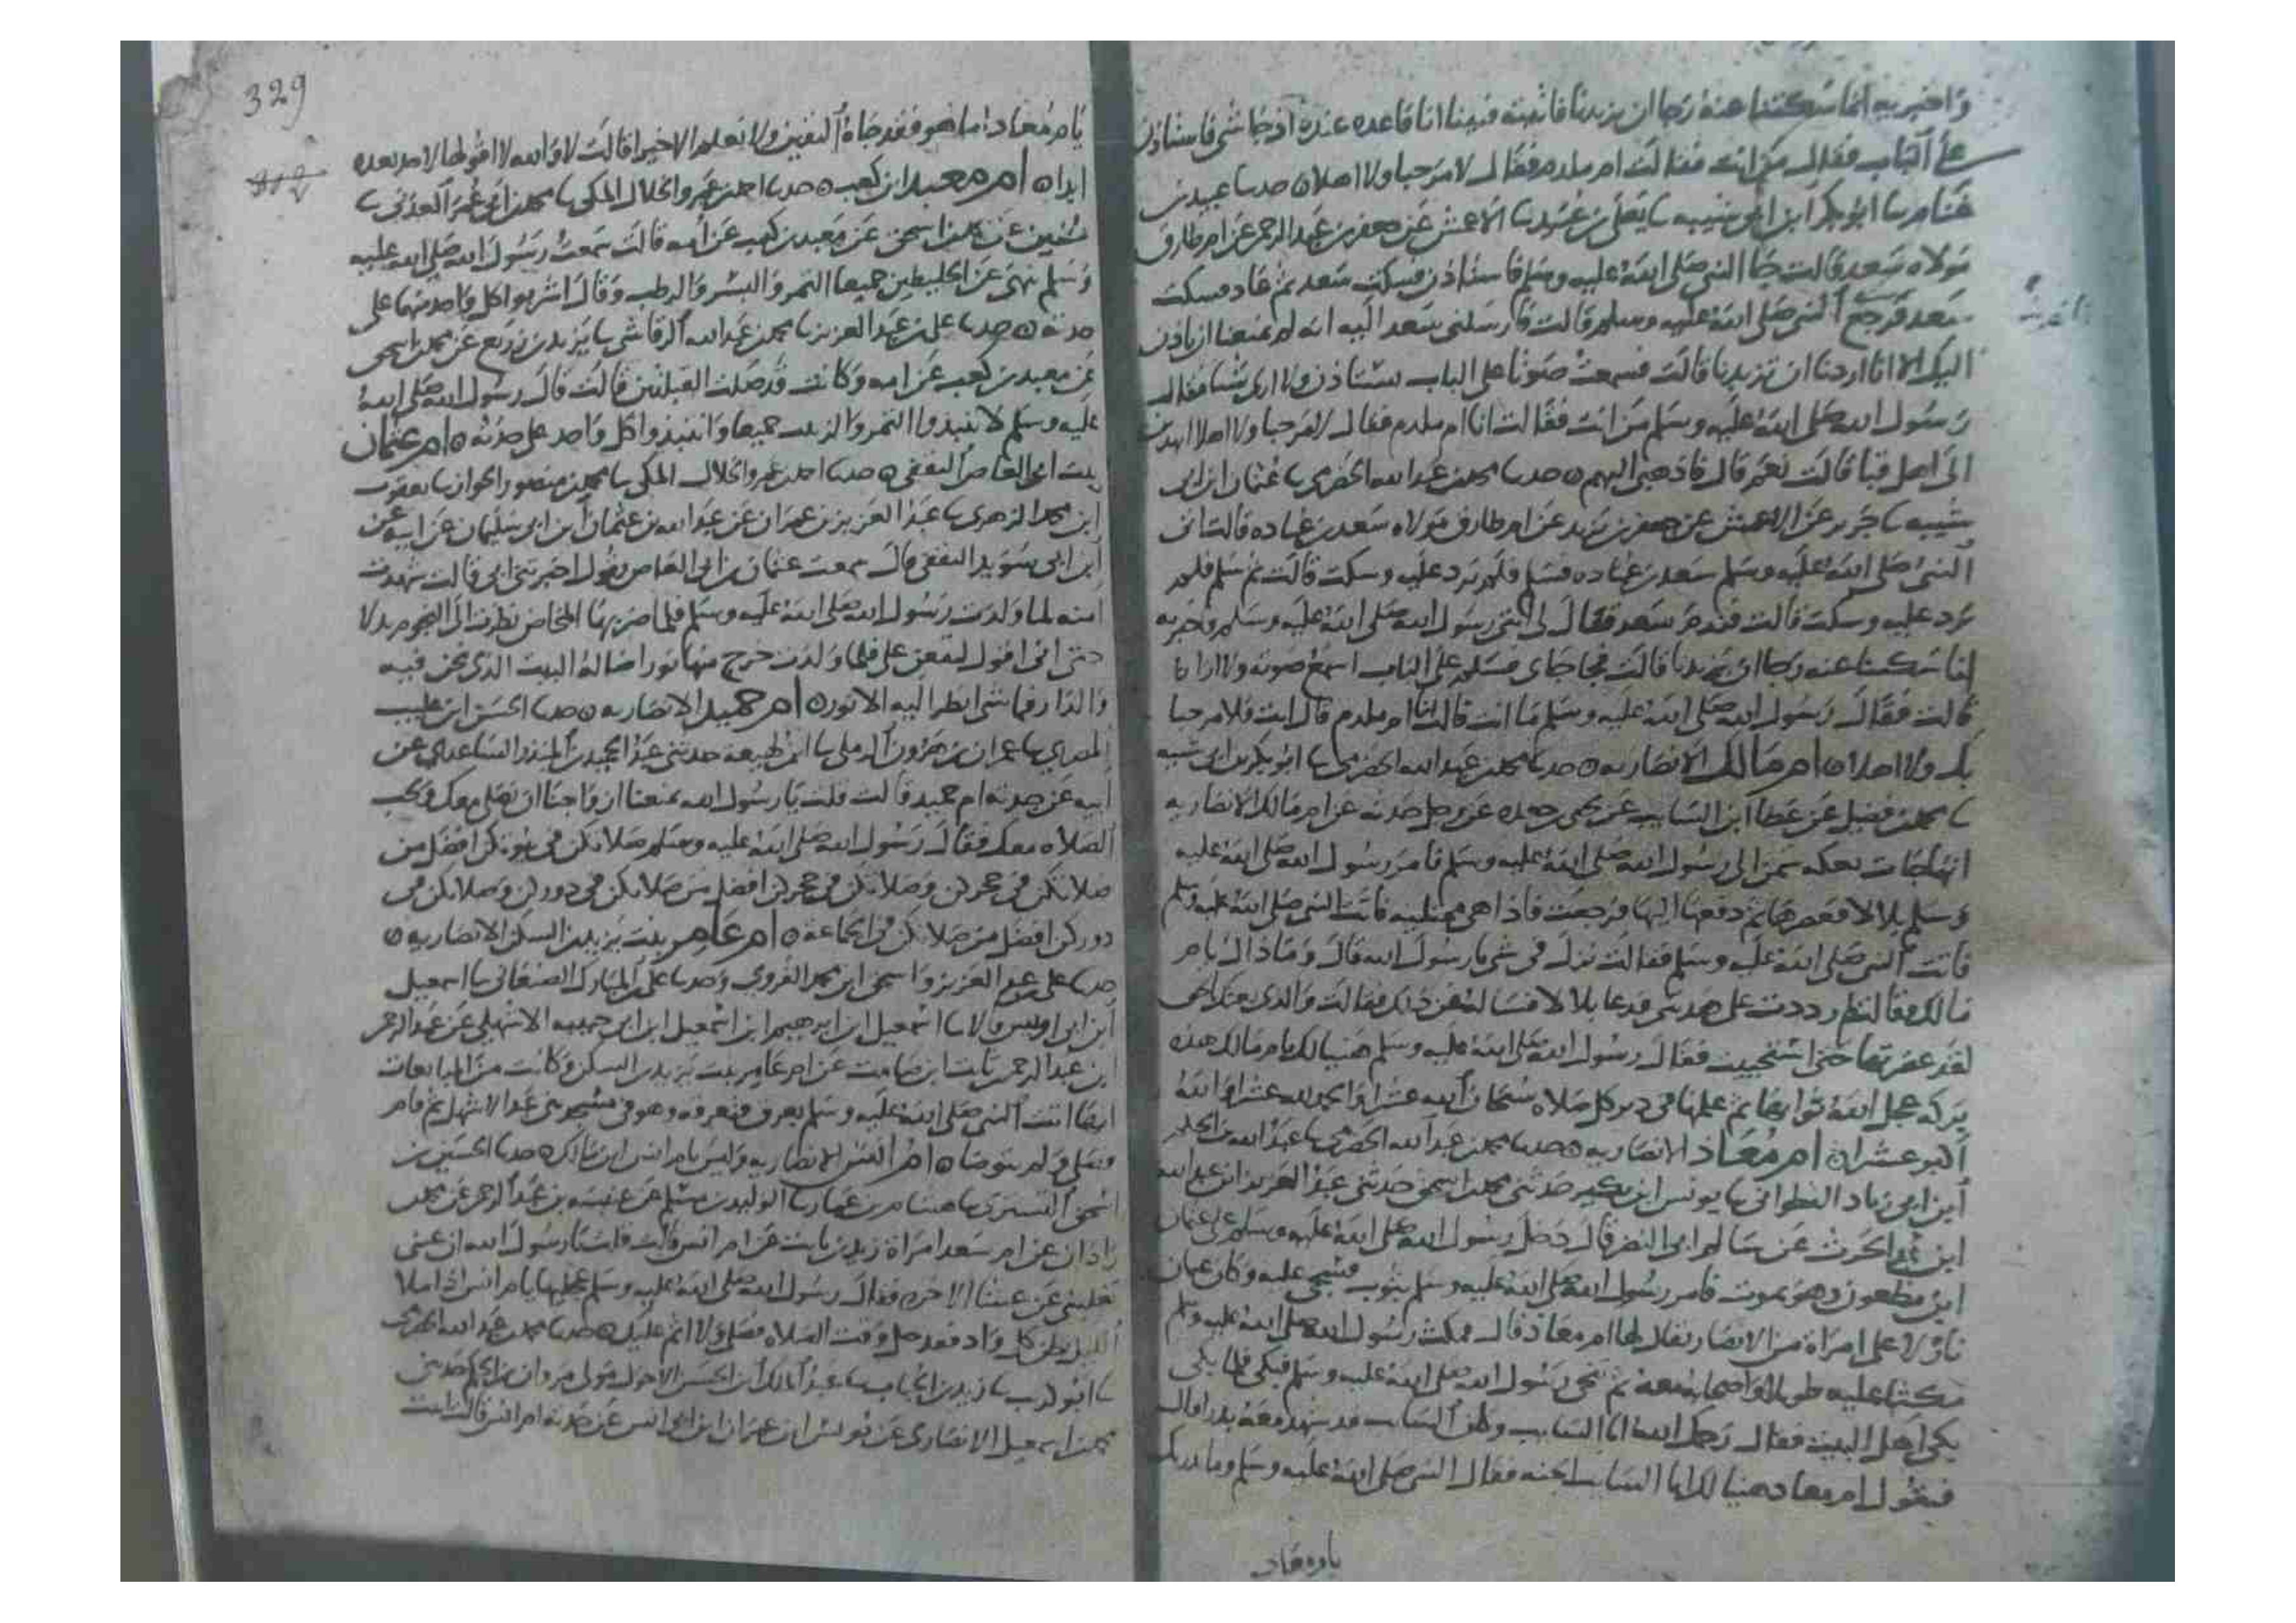 واخبريه انما سكتنا عنه رجا ان يزيدنا فاتيته فبينا انا قاعده عنده اذ جا شي فاستاذن
على الباب فقال من انت فقالت ام ملدم فقال لا مرحبا ولا اهلا ٥ حدثنا عبيد بن
غنام ثنا ابو بكر ابن ابي شيبه ثنا يعلى بن عبيد ثنا الاعمش عن جعفر بن عبد الرحمن عن ام طارق
مولاه سعد قالت جا النبي صلى الله عليه وسلم فاستاذن فسكت سعد ثم عاد فسكت
سعد فرجع النبي صلى الله عليه وسلم قالت فارسلني سعد اليه انه لم يمنعنا ان ياذن
اليك الا انا اردنا ان تزيدنا قالت فسمعت صوتا على الباب يستاذن ولا ارى شيا فقال
رسول الله صلى الله عليه وسلم من انت فقالت انا ام ملدم فقال لا مرحبا ولا اهلا اتهدين
الى اهل قبا قالت نعم قال فاذهبي اليهم ٥ حدثنا محمد بن عبد الله الحضرمي ثنا عثمان ابن ابي
شيبه ثنا جرير عن الاعمش عن جعفر بن يزيد عن ام طارق مولاه سعد بن عباده قالت اتى
النبي صلى الله عليه وسلم سعد بن عباده فسلم فلم يرد عليه وسكت قالت ثم سلم فلم
يرد عليه وسكت قالت فندم سعد فقال لي ائتي رسول الله صلى الله عليه وسلم فاخبريه
انا سكتنا عنه رجا ان يزيدنا قالت فجا جاي فسلم على الباب اسمع صوته ولا ارانا
قالت فقال رسول الله صلى الله عليه وسلم ما انت قالت انا ام ملدم قال انت فلا مرحبا
بك ولا اهلا ٥ ام مالك الانصاريه ٥ حدثنا محمد بن عبد الله الحضرمي ثنا ابو بكر بن ابي شيبه
ثنا محمد بن فضيل عن عطا ابن السايب عن يحيى بن جعده عن رجل حدثه عن ام مالك الانصاريه
انها جات بعكه سمن الى رسول الله صلى الله عليه وسلم فامر رسول الله صلى الله عليه
وسلم بلالا فعصرها ثم دفعها اليها فرجعت فاذا هي ممتليه فاتت النبي صلى الله عليه وسلم
فاتت النبي صلى الله عليه وسلم فقالت نزل في شي يا رسول الله قال وما ذاك يا ام
مالك فقالت لم رددت علي هديتي فدعا بلالا فساله عن ذلك فقالت والذي بعثك بالحق
لقد عصرتها حتى استحييت فقال رسول الله صلى الله عليه وسلم هنيا لك يا ام مالك هذه
بركه عجل الله ثوابها ثم علمها في دبر كل صلاه سبحان الله عشرا والحمد لله عشرا والله
اكبر عشرا ٥ ام معاذ الانصاريه ٥ حدثنا محمد بن عبد الله الحضرمي ثنا عبد الله بن الحكم
ابن ابي زياد القطواني ثنا يونس ابن بكير حدثني محمد بن اسحق حدثني عبد العزيز ابن عبد الله
ابن الحرث عن سالم ابي النضر قال دخل رسول الله صلى الله عليه وسلم على عثمان
ابن مظعون وهو يموت فامر رسول الله صلى الله عليه وسلم بثوب فسجي عليه وكان عثمان
نازلا على امراة من الانصار يقال لها ام معاذ قال فمكث رسول الله صلى الله عليه وسلم
مكبا عليه طويلا واصحابه معه ثم تنحى رسول الله صلى الله عليه وسلم فبكى فلما بكى
بكى اهل البيت فقال رحمك الله ابا السايب وكان السايب قد شهد معه بدرا قال
فتقول ام معاذ هنيا لك ابا السايب الجنه فقال النبي صلى الله عليه وسلم وما يدريك
يا ام معاذ
329
يا ام معاذ اما هو فقد جاه اليقين ولا نعلم الا خيرا قالت لا والله لا اقولها لاحد بعده
ابدا ٥ ام معبد ابن كعب ٥ حدثنا احمد بن عمرو الخلال المكي ثنا محمد بن ابي عمر العدني ثنا
سفين عن محمد بن اسحق عن معبد بن كعب عن امه قالت سمعت رسول الله صلى الله عليه
وسلم ينهى عن الخليطين جميعا التمر والبسر والرطب وقال اشربوا كل واحد منهما على
حدته ٥ حدثنا علي بن عبد العزيز ثنا محمد بن عبد الله الرقاشي ثنا يزيد بن زريع عن محمد بن اسحق
عن معبد بن كعب عن امه وكانت قد صلت القبلتين قالت قال رسول الله صلى الله
عليه وسلم لا تنتبذوا التمر والزبيب جميعا وانتبذوا كل واحد على حدته ٥ ام عثمان
بنت ابي العاص الثقفي ٥ حدثنا احمد بن عمرو الخلال المكي ثنا محمد بن منصور الجواز ثنا يعقوب
ابن محمد الزهري ثنا عبد العزيز بن عمران عن عبد الله بن عثمان ابن ابي سليمان عن ابيه عن
ابن ابي سويد الثقفي قال سمعت عثمان بن ابي العاص يقول اخبرتني امي قالت شهدت
امنه لما ولدت رسول الله صلى الله عليه وسلم فلما ضربها المخاض نظرت الى النجوم تدلا
حتى اني اقول لتقعن علي فلما ولدت خرج منها نور اضا له البيت الذي نحن فيه
والدار فما شي انظر اليه الا نور ٥ ام حميد الانصاريه ٥ حدثنا الحسن ابن عليب
المصري ثنا عمران بن هرون الرملي ثنا ابن لهيعه حدثني عبد الحميد بن المنذر الساعدي عن
ابيه عن جدته ام حميد قالت قلت يا رسول الله يمنعنا ازواجنا ان نصلي معك ونحب
الصلاه معك فقال رسول الله صلى الله عليه وسلم صلاتكن في بيوتكن افضل من
صلاتكن في حجركن وصلاتكن في حجركن افضل من صلاتكن في دوركن وصلاتكن في
دوركن افضل من صلاتكن في الجماعه ٥ ام عامر بنت يزيد بن السكن الانصاريه ٥
حدثنا علي بن عبد العزيز ثنا اسحق ابن محمد الفروي وحدثنا علي بن المبارك الصنعاني ثنا اسمعيل
ابن ابي اويس قالا ثنا اسمعيل ابن ابرهيم ابن اسمعيل ابن ابي حبيبه الاشهلي عن عبد الرحمن
ابن عبد الرحمن ثابت ابن صامت عن ام عامر بنت يزيد بن السكن وكانت من المبايعات
انها اتت النبي صلى الله عليه وسلم بعرق فتعرقه وهو في مسجد بني عبد الاشهل ثم قام
وصلى ولم يتوضا ٥ ام انس الانصاريه وليس بام انس ابن مالك ٥ حدثنا الحسين بن
اسحق التستري ثنا هشام بن عمار ثنا الوليد بن مسلم عن عنبسه بن عبد الرحمن عن محمد بن
زاذان عن ام سعد امراة زيد بن ثابت عن ام انس قالت قلت يا رسول الله ان عيني
تغلبني عن عشا الاخره فقال رسول الله صلى الله عليه وسلم عجليها يا ام انس اذا ملا
الليل بطن كل واد فقد حل وقت الصلاه فصلي ولا اثم عليك ٥ حدثنا محمد بن عبد الله الحضرمي
ثنا ابو كريب ثنا زيد بن الحباب ثنا عبد الملك ابن الحسن الاحول مولى مروان بن الحكم حدثني
محمد بن اسمعيل الانصاري عن يونس ابن عمران ابن ابي انس عن جدته ام انس قالت اتيت